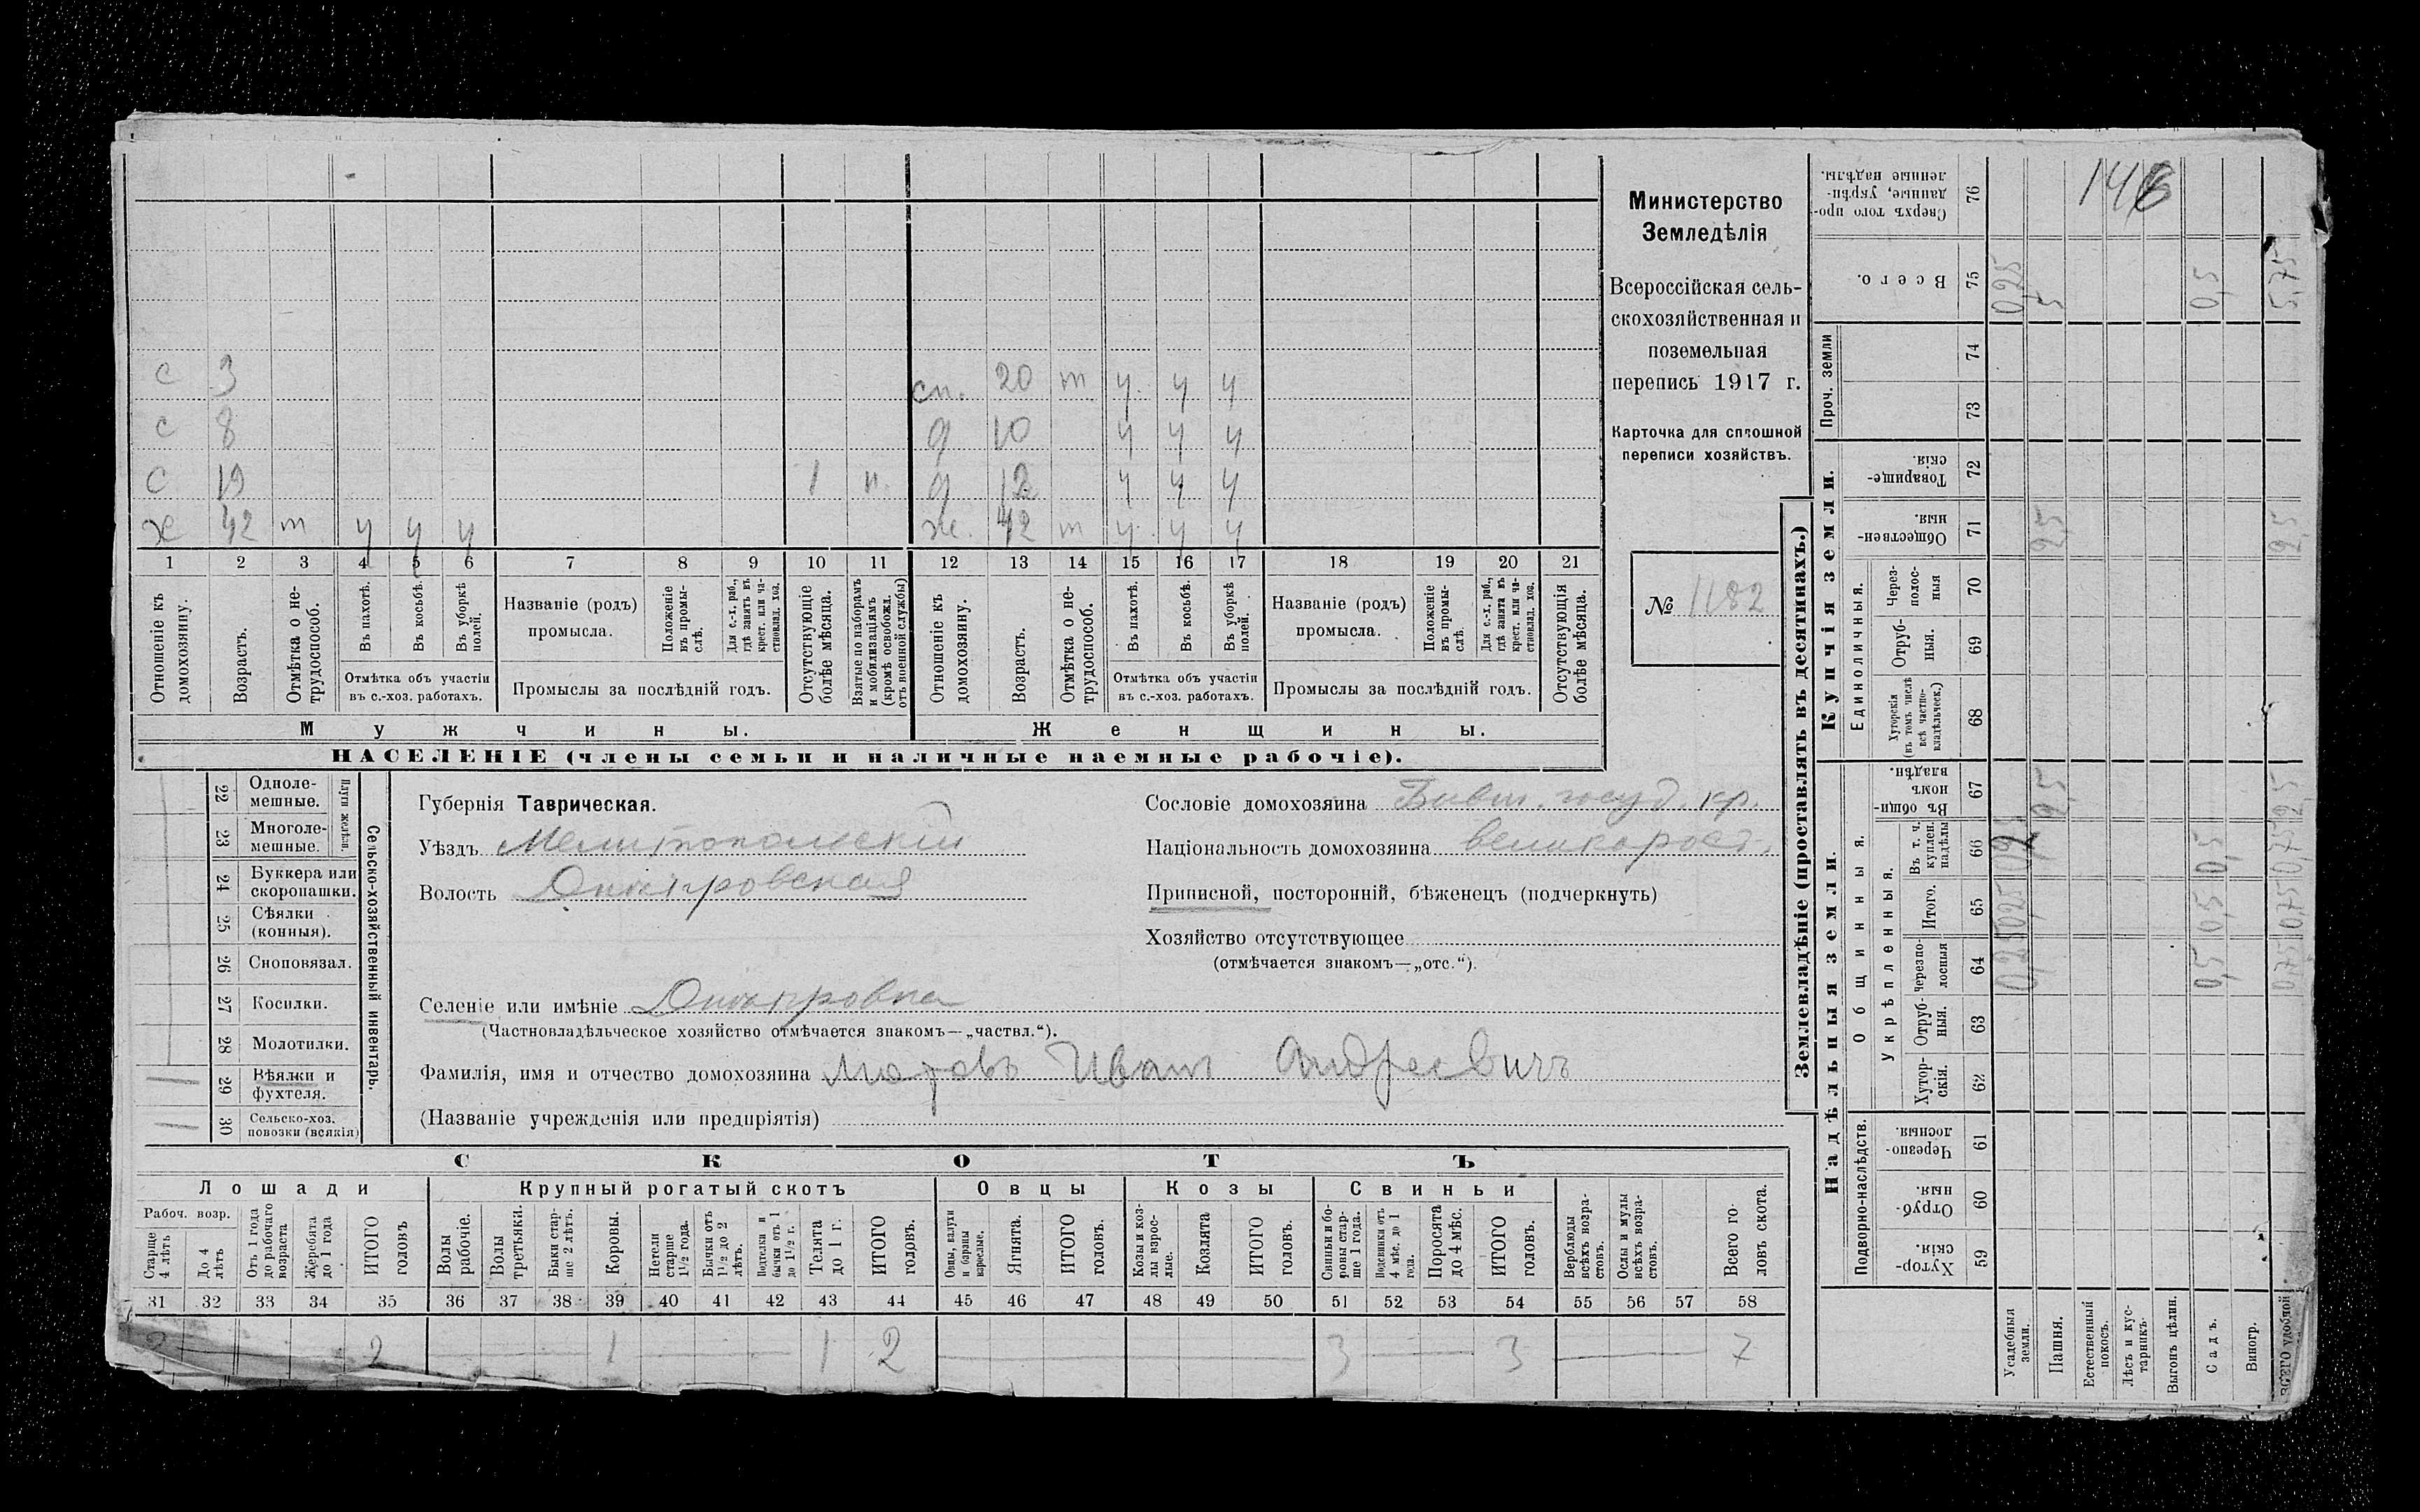 146
с 3 сн. 20 т ч ч ч
с 8 д 10 ч ч ч
с 19 1 н. д 12 ч ч ч
х 42 т ч ч ч ж. 42 т ч ч ч
1 2 3 4 5 6 7 8 9 10 11 12 13 14 15 16 17 18 19 20 21
Отношеніе къ домохозяину.
Возрастъ.
Отмѣтка о нетрудоспособ.
Въ пахотѣ.
Въ косьбѣ.
Въ уборкѣ полей.
Отмѣтка объ участіи
въ с.-хоз. работахъ.
Названіе (родъ)
промысла.
Положеніе въ промыслѣ.
Для с.-х. раб., гдѣ занятъ въ крест. или частновлад. хоз.
Промыслы за послѣдній годъ.
Отсутствующіе болѣе мѣсяца.
Взятые по наборамъ и мобилизаціямъ (кромѣ освобожд. отъ военной службы)
Отношеніе къ домохозяину.
Возрастъ.
Отмѣтка о нетрудоспособ.
Въ пахотѣ.
Въ косьбѣ.
Въ уборкѣ полей.
Отмѣтка объ участіи
въ с.-хоз. работахъ.
Названіе (родъ)
промысла.
Положеніе въ промыслѣ.
Для с.-х. раб., гдѣ занята въ крест. или частновлад. хоз.
Промыслы за послѣдній годъ.
Отсутствующія болѣе мѣсяца.
Мужчины. Женщины.
НАСЕЛЕНІЕ (члены семьи и наличные наемные рабочіе).
Министерство
Земледѣлія
Всероссійская сель-
скохозяйственная и
поземельная
перепись 1917 г.
Карточка для сплошной
переписи хозяйствъ.
№ 1182
Сельско-хозяйственный инвентарь.
Плуги желѣзн.
22 Одноле-
мешные.
23 Многоле-
мешные.
24 Буккера или
скоропашки.
25 Сѣялки
(конныя).
26 Сноповязал.
27 Косилки.
28 Молотилки.
29 Вѣялки и
фухтеля.
30 Сельско-хоз.
повозки (всякія)
Губернія Таврическая.
Уѣздъ Мелитопольскій
Волость Днѣпровская
Селеніе или имѣніе Днѣпровка
(Частновладѣльческое хозяйство отмѣчается знакомъ—„частвл.“).
Фамилія, имя и отчество домохозяина Иванъ Андреевичъ
(Названіе учрежденія или предпріятія)
Сословіе домохозяина Бывш. госуд. кр.
Національность домохозяина великорос.
Приписной, посторонній, бѣженецъ (подчеркнуть)
Хозяйство отсутствующее
(отмѣчается знакомъ—„отс.“).
СКОТЪ
Лошади Крупный рогатый скотъ Овцы Козы Свиньи
Рабоч. возр.
Старше 4 лѣтъ
До 4 лѣтъ
Отъ 1 года до рабочаго возраста
Жеребята до 1 года
ИТОГО головъ
Волы рабочіе.
Волы третьяки.
Быки старше 2 лѣтъ.
Коровы.
Нетели старше 1½ года.
Бычки отъ 1½ до 2 лѣтъ.
Подтелки и бычки отъ 1 до 1½ г.
Телята до 1 г.
ИТОГО головъ.
Овцы, валухи и бараны взрослые.
Ягнята.
ИТОГО головъ.
Козы и козлы взрослые.
Козлята
ИТОГО головъ.
Свиньи и боровы старше 1 года.
Подсвинки отъ 4 мѣс. до 1 года.
Поросята до 4 мѣс.
ИТОГО головъ.
Верблюды всѣхъ возрастовъ.
Ослы и мулы всѣхъ возрастовъ.
Всего головъ скота.
31 32 33 34 35 36 37 38 39 40 41 42 43 44 45 46 47 48 49 50 51 52 53 54 55 56 57 58
2 2 1 1 2 3 3 7
Землевладѣніе (проставлять въ десятинахъ.)
Надѣльныя земли. Купчія земли. Проч. земли
Подворно-наслѣдств. Общинныя. Единоличныя.
Укрѣпленныя.
59 Хутор-
скія.
60 Отруб-
ныя.
61 Черезпо-
лосныя.
62 Хутор-
скія.
63 Отруб-
ныя.
64 Черезпо-
лосныя
65 Итого.
66 Въ т. ч.
куплен.
надѣлы
67 Въ общин-
номъ
владѣн.
68 Хуторскія
(въ томъ числѣ
всѣ частно-
владѣльческ.)
69 Отруб-
ныя.
70 Через-
полос-
ныя
71 Обществен-
ныя.
72 Товарище-
скія.
73
74
75 Всего.
76 Сверхъ того про-
данные, укрѣп-
ленные надѣлы.
Усадебныя земли. 0,25 0,25 0,25
Пашня. 2,5 2,5 5
Естественный покосъ.
Лѣсъ и кустарникъ.
Выгонъ цѣлин.
Садъ. 0,5 0,5 0,5 0,5
Виногр.
ВСЕГО удобной 0,75 0,75 0,75 2,5 2,5 5,75